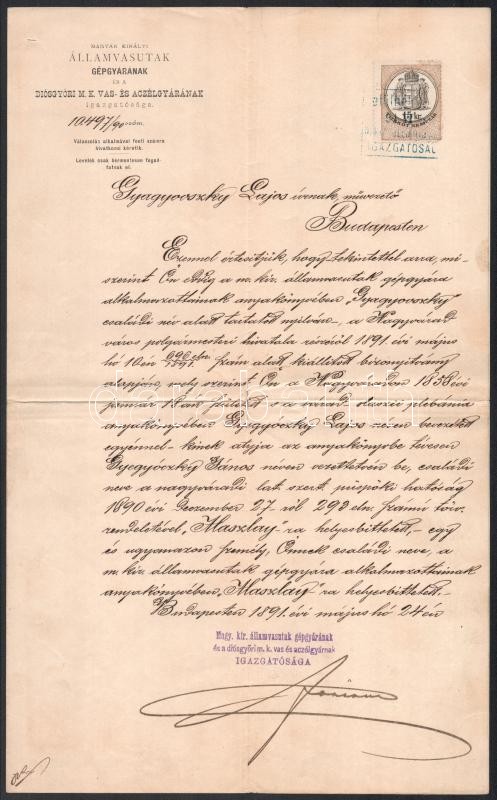 MAGYAR KIRÁLYI
ÁLLAMVASUTAK
GÉPGYÁRÁNAK
ÉS A
DIÓSGYŐRI M. K. VAS- ÉS ACZÉLGYÁRÁNAK
igazgatósága.
10497/90 szám.
Válaszolás alkalmával fenti számra
hivatkozni kéretik.
Levelek csak bérmentesen fogad-
tatnak el.
15 kr.
IGAZGATÓSÁG
Gyagyovszky Lajos úrnak, művezető
Budapesten
Ezennel értesitjük, hogy tekintettel arra, mi-
szerint Ön eddig a m. kir. államvasutak gépgyára
alkalmazottainak anyakönyvében "Gyagyovszky"
családi név alatt tartatott nyilván, a Nagyvárad
város polgármesteri hivatala részéről 1891. évi május
hó 10én szám alatt kiállitott bizonyitvány
alapján, mely szerint Ön a Nagyváradon 1858 évi
január született, s a várad olaszii plébánia
anyakönyvében Gyögyóczky Lajos néven bevezetett
egyénnel - kinek atyja az anyakönyvbe tévesen
Gyegyóczky János néven vezettetvén be, családi
neve a nagyváradi lat. szert. püspöki hatóság
1890 évi Deczember 27-ről 293 eln. számú törv.
rendeletével "Maszlay"-ra helyesbittetett, - egy
és ugyanazon személy, Önnek családi neve, a
m. kir. államvasutak gépgyára alkalmazottainak
anyakönyvében, "Maszlay"-ra helyesbittetett.
Budapesten 1891. évi május hó 24én
Magy. kir. államvasutak gépgyárának
és a diósgyőri m. k. vas és aczélgyárnak
IGAZGATÓSÁGA